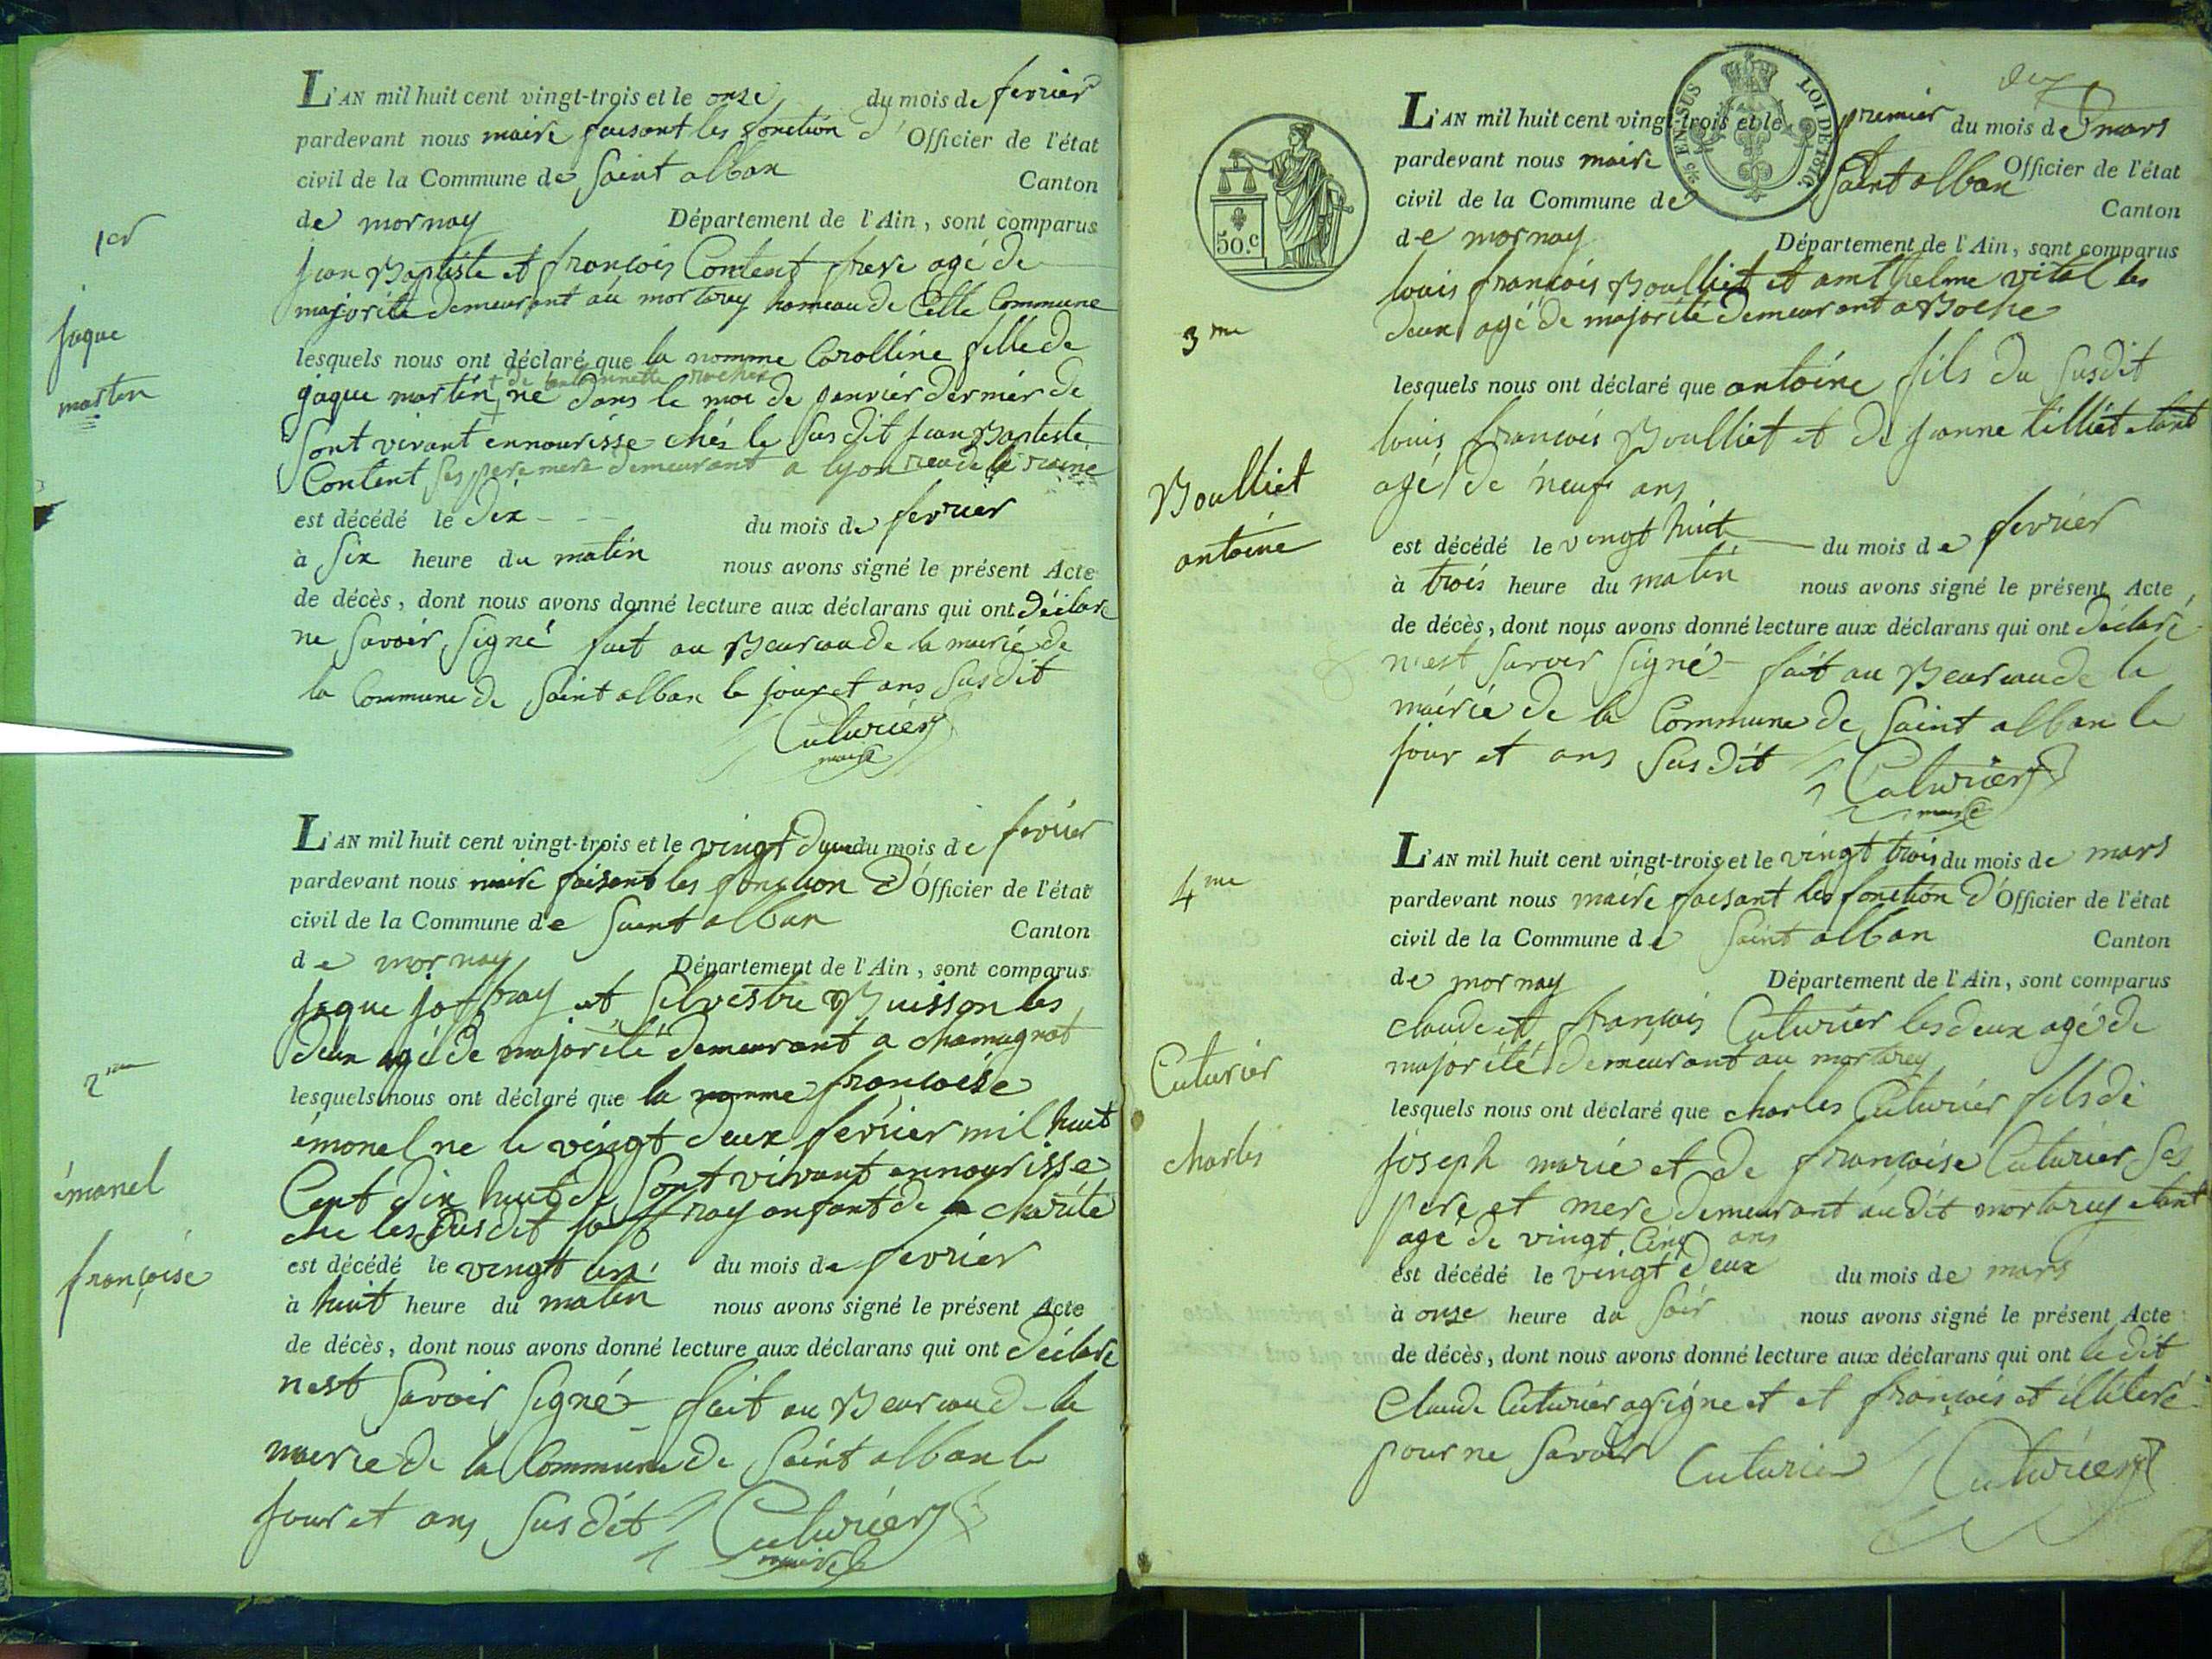 1er
jaque
marten
L'AN mil huit cent vingt-trois et le onze du mois de fevrier
pardevant nous maire faisant les fonction d'Officier de l'état
civil de la Commune de Saint alban Canton
de mornay Département de l'Ain, sont comparus
jean Baptiste et françois Content frere agé de
majorité demeurant au mortarey hameau de Cette Commune
lesquels nous ont déclaré que la nomme Carolline fille de
+ de rochex
jaque martin + né dans le moi de janvier dernier de
Sont vivant ennourisse chés le Susdit jean Baptiste
Content Ses pere mere demeurant a lyon rue de
est décédé le dix du mois de fevrier
à Six heure du matin nous avons signé le présent Acte
de décès, dont nous avons donné lecture aux déclarans qui ont déclaré
ne Savoir Signé fait au Beureau de la mairie de
la Commune de Saint alban le jour et ans Susdit
Cuturier
maire
2me
émonel
françoise
L'AN mil huit cent vingt-trois et le vingt deux du mois de fevrier
pardevant nous maire faisant les fonction d'Officier de l'état
civil de la Commune de Saint alban Canton
de mornay Département de l'Ain, sont comparus
jaque joffray et Silvestre Buisson les
deux agé de majorité demeurant a chamagnat
lesquels nous ont déclaré que la nomme françoise
émonel ne le vingt deux fevrier mil huit
Cent dix huit de Sont vivant ennourisse
ché les Susdit joffray enfant de charité
est décédé le vingt un du mois de fevrier
à huit heure du matin nous avons signé le présent Acte
de décès, dont nous avons donné lecture aux déclarans qui ont déclaré
nest Savoir Signé fait au Beureau de la
mairie de la Commune de Saint alban le
jour et ans Susdit Cuturier
maire
deux
50.c
EN SUS
LOI DE 1816
3me
Boulliet
antoine
L'AN mil huit cent vingt-trois et le premier du mois de mars
pardevant nous maire Officier de l'état
civil de la Commune de Saint alban Canton
de mornay Département de l'Ain, sont comparus
louis françois Boulliet et anthelme vital les
deux agé de majorité demeurant a Boche
lesquels nous ont déclaré que antoine fils du Susdit
louis françois Boulliet et de janne tilliet etant
agé de neuf ans
est décédé le vingt huit du mois de fevrier
à trois heure du matin nous avons signé le présent Acte
de décès, dont nous avons donné lecture aux déclarans qui ont déclaré
nest Savoir Signé fait au Beureau de la
mairie de la Commune de Saint alban le
jour et ans Susdit Cuturier
maire
4me
Cuturier
charles
L'AN mil huit cent vingt-trois et le vingt trois du mois de mars
pardevant nous maire faisant les fonction d'Officier de l'état
civil de la Commune de Saint alban Canton
de mornay Département de l'Ain, sont comparus
claude et françois Cuturier les deux agé de
majorité demeurant au mortarey
lesquels nous ont déclaré que charles Cuturier fils de
joseph marie et de françoise Cuturier Ses
pere et mere demeurant audit mortarey etant
agé de vingt Cinq ans
est décédé le vingt deux du mois de mars
à onze heure du Soir nous avons signé le présent Acte
de décès, dont nous avons donné lecture aux déclarans qui ont ledit
Claude Cuturier a Signe et et françois et illiteré
pour ne Savoir Cuturier Cuturier